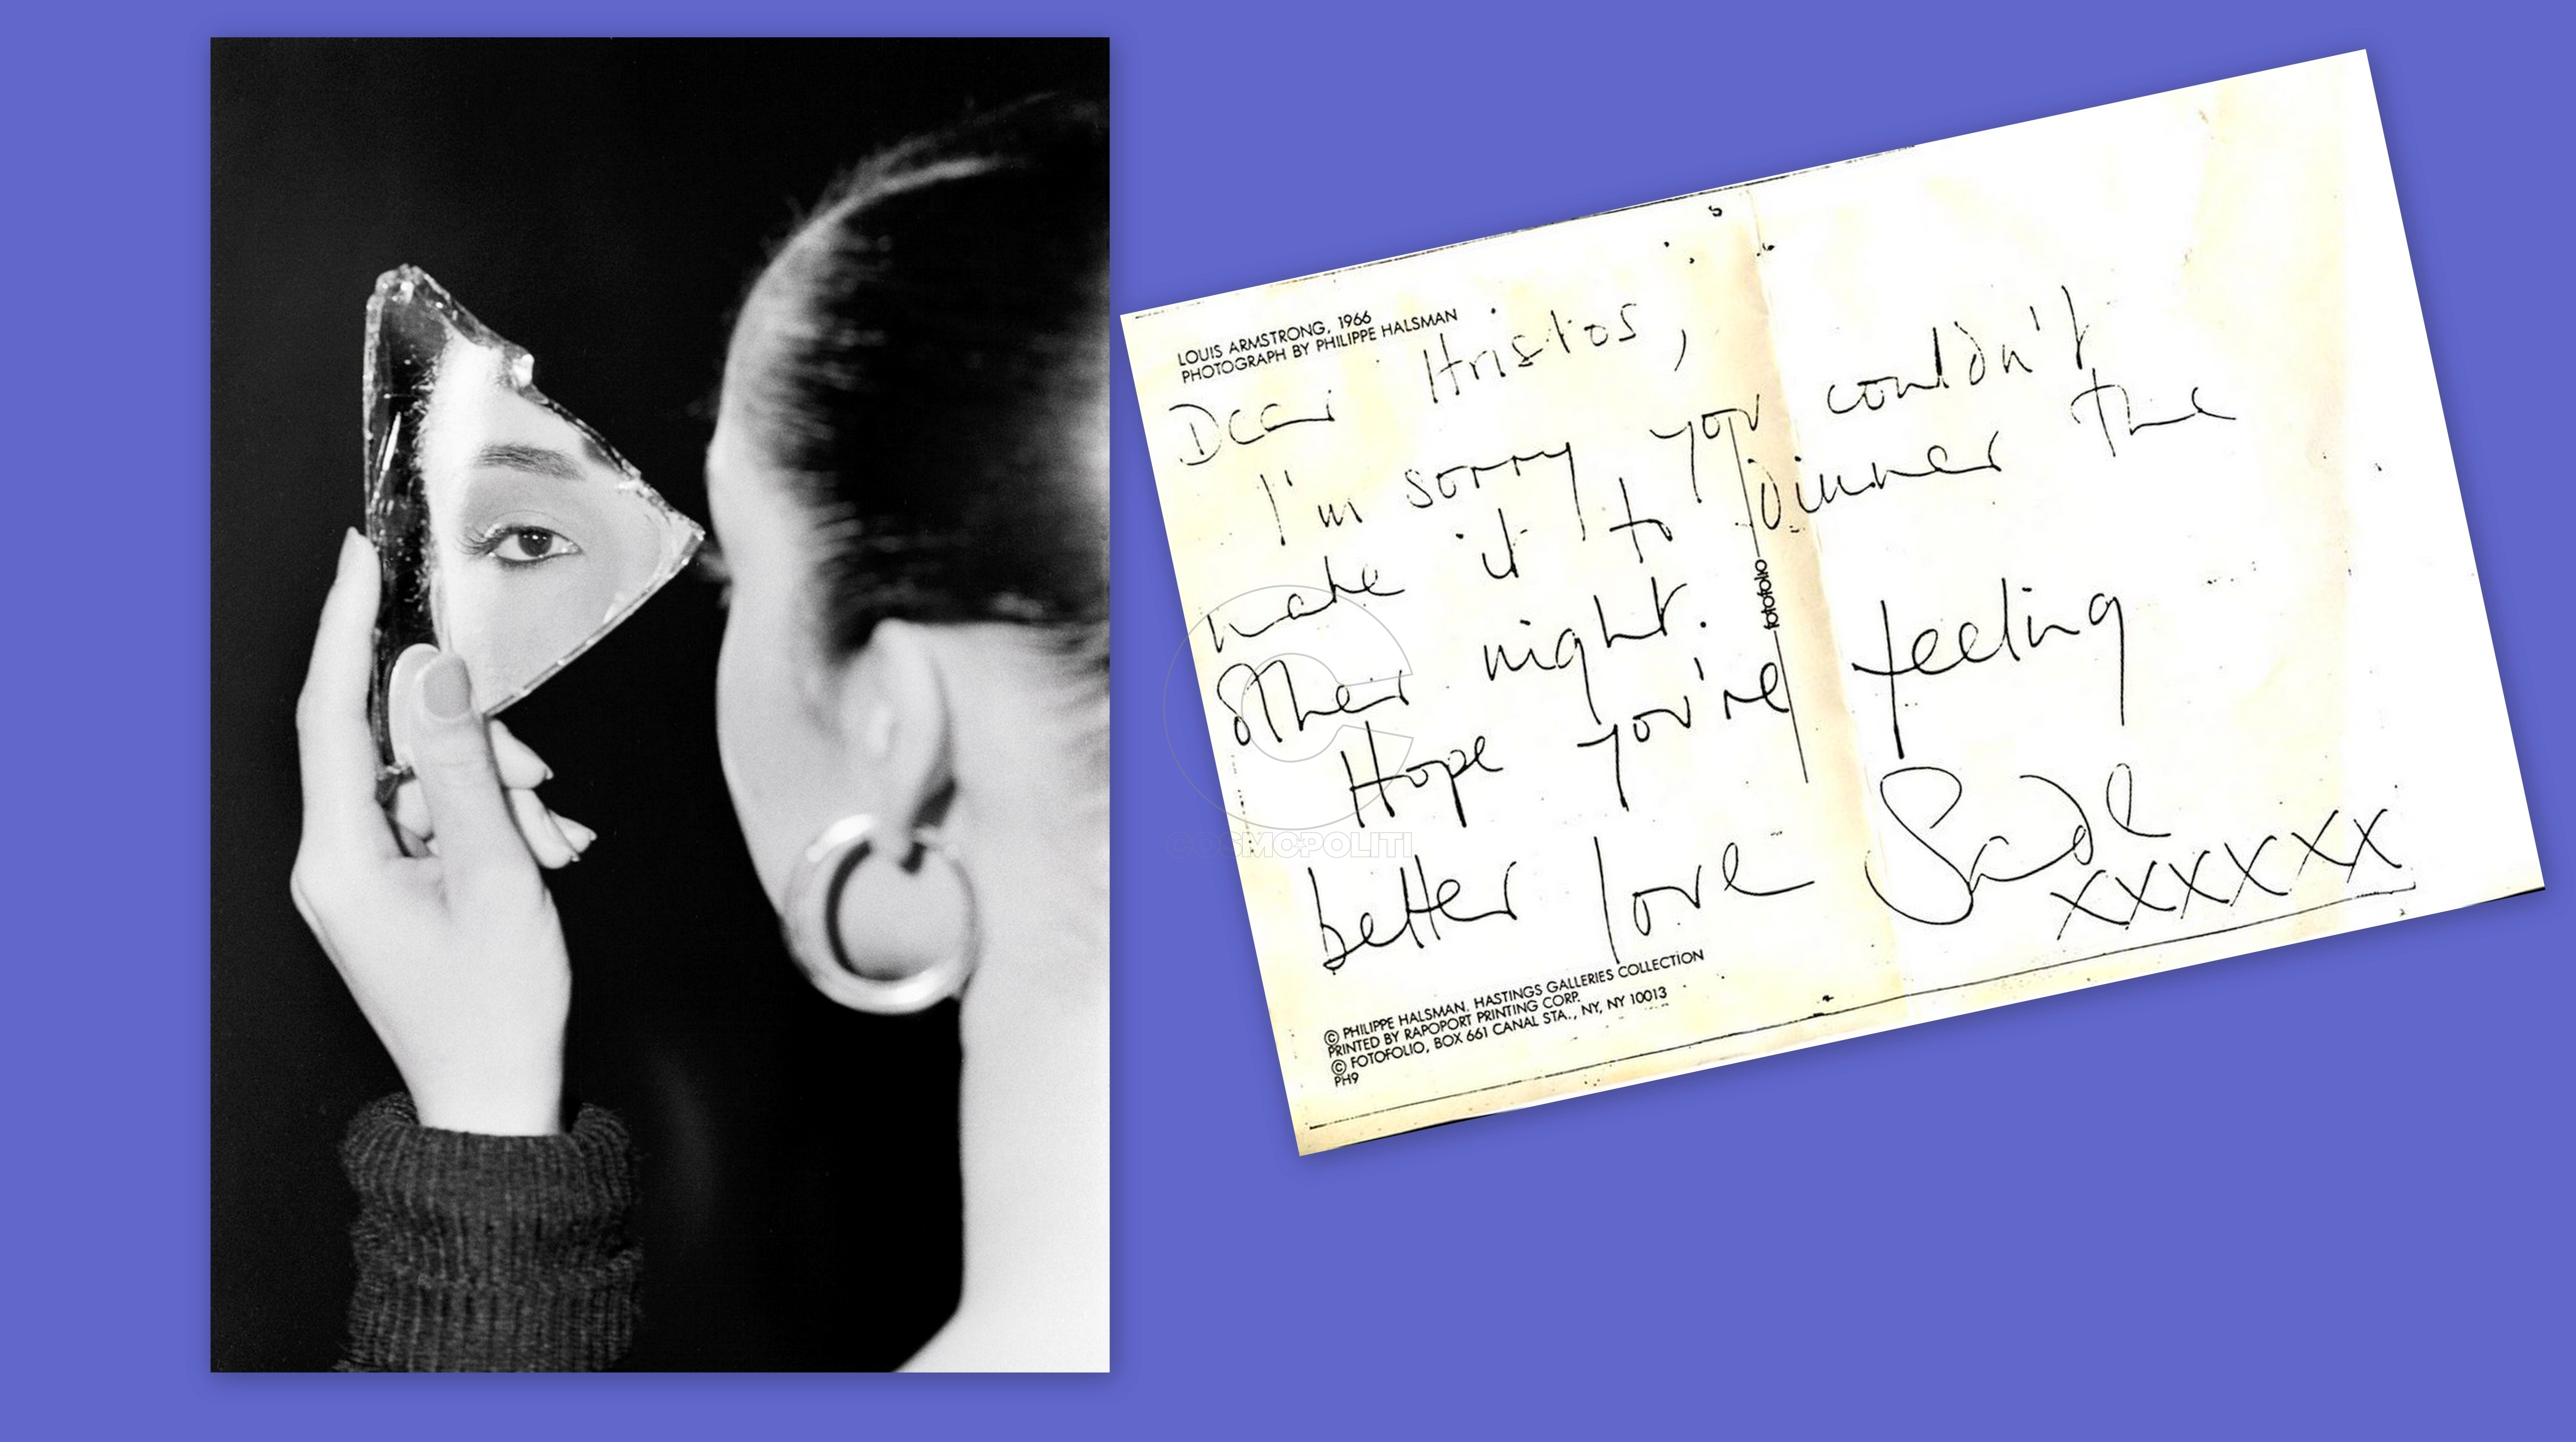 LOUIS ARMSTRONG, 1966
PHOTOGRAPH BY PHILIPPE HALSMAN
Dear Hristos,
I'm sorry you couldn't
make it to Dinner the
other night.
Hope you're feeling
better love Sade
xxxxxxx
fotofolio
© PHILIPPE HALSMAN. HASTINGS GALLERIES COLLECTION
PRINTED BY RAPOPORT PRINTING CORP.
© FOTOFOLIO, BOX 661 CANAL STA., NY, NY 10013
PH9
COSMOPOLITI